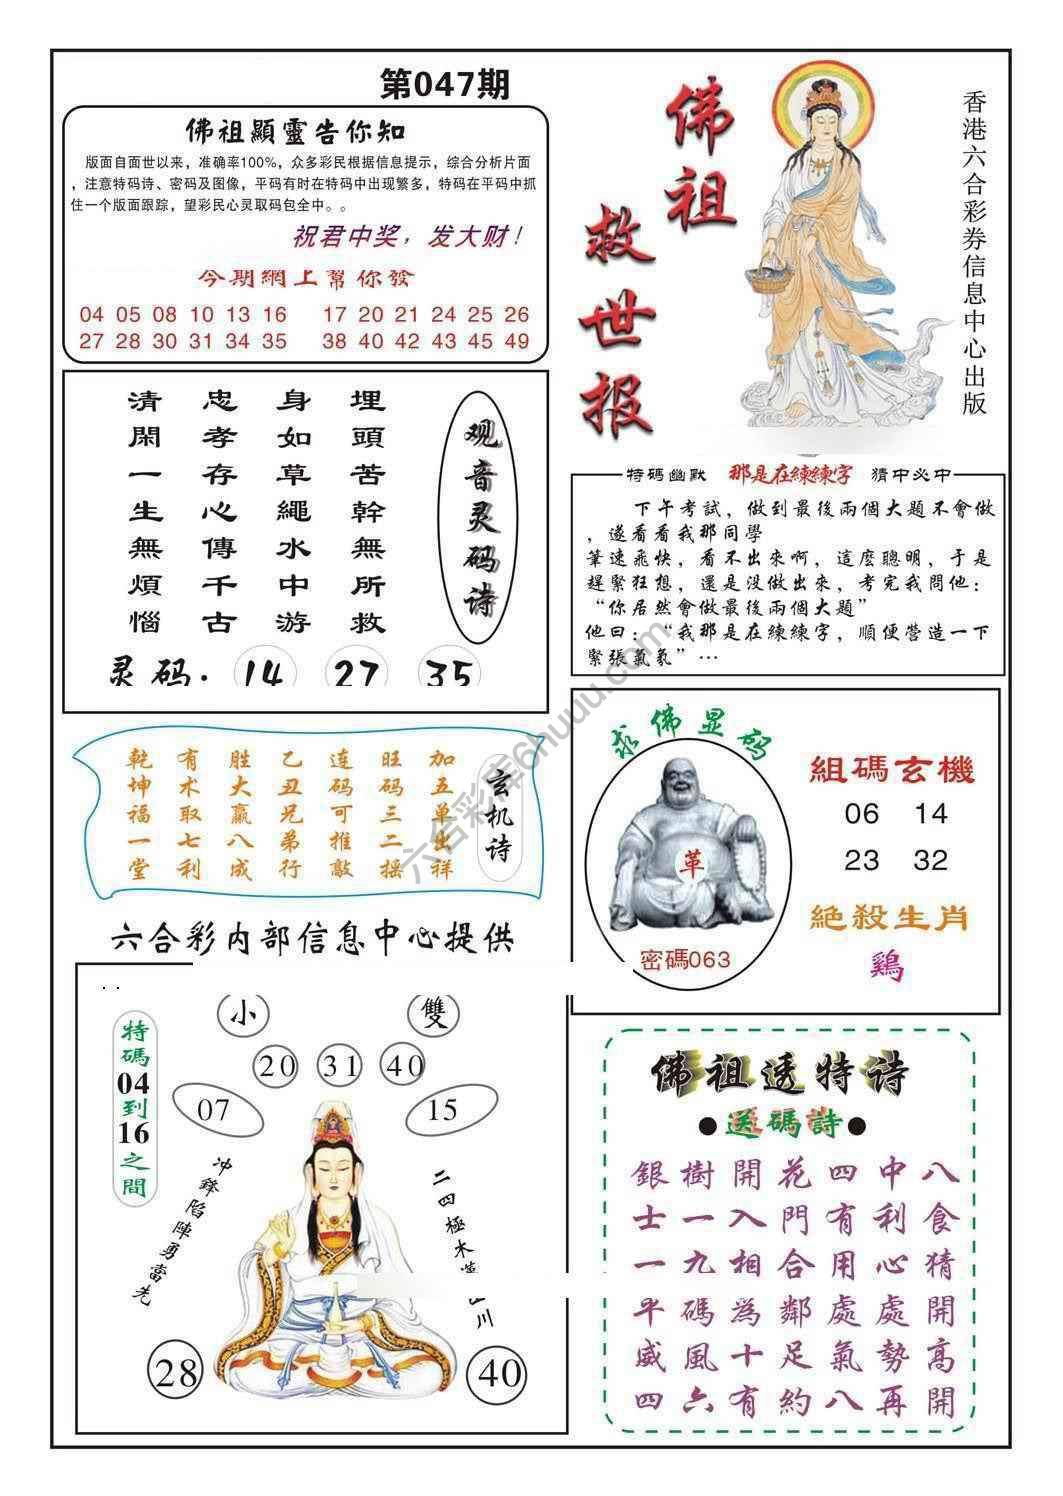 第047期
佛祖顯靈告你知
版面自面世以来，准确率100%，众多彩民根据信息提示，综合分析片面
，注意特码诗、密码及图像，平码有时在特码中出现繁多，特码在平码中抓
住一个版面跟踪，望彩民心灵取码包全中。。
祝君中奖，发大财！
今期網上幫你發
04 05 08 10 13 16 17 20 21 24 25 26
27 28 30 31 34 35 38 40 42 43 45 49
佛祖救世报
香港六合彩券信息中心出版
观音灵码诗
埋頭苦幹無所救
身如草繩水中游
忠孝存心傳千古
清閑一生無煩惱
灵码. 14 27 35
特碼幽默 那是在練練字 猜中必中
下午考試，做到最後兩個大題不會做
，遂看看我那同學
筆速飛快，看不出來啊，這麼聰明，于是
趕緊狂想，還是没做出來，考完我問他：
“你居然會做最後兩個大題”
他曰：“我那是在練練字，順便營造一下
緊張氣氛”…
玄机诗
加五单出祥
旺码三二摇
连码可推敲
乙丑兄弟行
胜大赢八成
有术取七利
乾坤福一堂
求佛显码
革
密碼063
組碼玄機
06 14
23 32
絕殺生肖
鷄
六合彩内部信息中心提供
. .
特碼04到16之間
小 雙
20 31 40
07 15
冲鋒陷陣勇當先
二四極木
川
28 40
佛祖透特诗
●送碼詩●
銀樹開花四中八
士一入門有利食
一九相合用心猜
平碼為鄰處處開
威風十足氣勢高
四六有約八再開
六合彩库6huuu.com